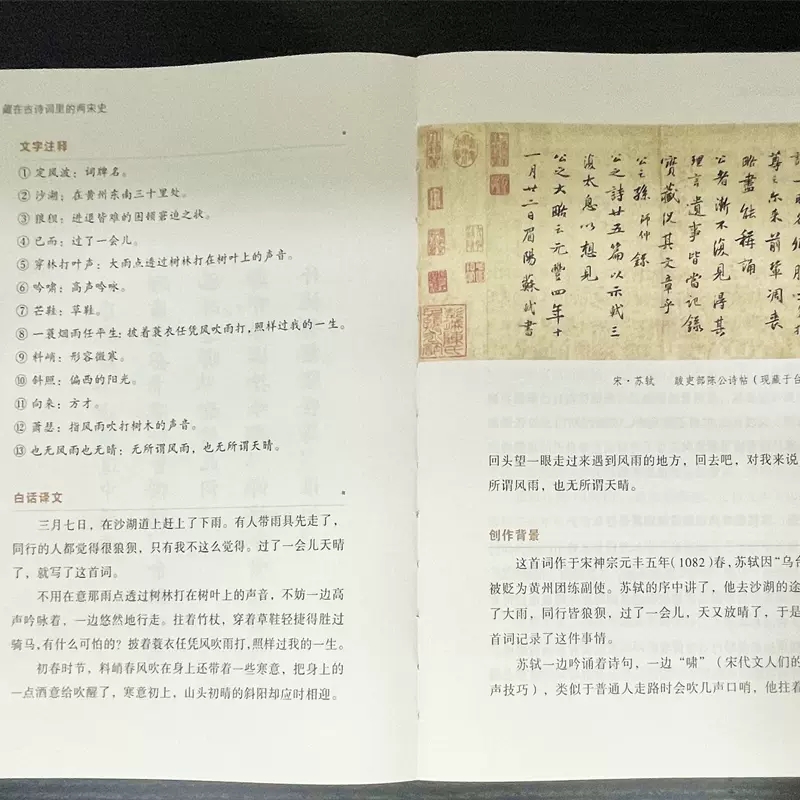 藏在古诗词里的两宋史
文字注释
①定风波：词牌名。
②沙湖：在黄州东南三十里处。
③狼狈：进退皆难的困顿窘迫之状。
④已而：过了一会儿。
⑤穿林打叶声：大雨点透过树林打在树叶上的声音。
⑥吟啸：高声吟咏。
⑦芒鞋：草鞋。
⑧一蓑烟雨任平生：披着蓑衣任凭风吹雨打，照样过我的一生。
⑨料峭：形容微寒。
⑩斜照：偏西的阳光。
⑪向来：方才。
⑫萧瑟：指风雨吹打树木的声音。
⑬也无风雨也无晴：无所谓风雨，也无所谓天晴。
白话译文
三月七日，在沙湖道上赶上了下雨。有人带雨具先走了，
同行的人都觉得很狼狈，只有我不这么觉得。过了一会儿天晴
了，就写了这首词。
不用在意那雨点透过树林打在树叶上的声音，不妨一边高
声吟咏着，一边悠然地行走。拄着竹杖，穿着草鞋轻捷得胜过
骑马，有什么可怕的？披着蓑衣任凭风吹雨打，照样过我的一生。
初春时节，料峭春风吹在身上还带着一些寒意，把身上的
一点酒意给吹醒了，寒意初上，山头初晴的斜阳却应时相迎。
尊之尔来前辈凋丧
略尽能称诵
公者渐不复见得其
理言遗事皆当记录
宝藏况其文章乎
公之孙师仲录
公之诗廿五篇以示轼三
复太息以想见
公之大略云元丰四年十
一月廿二日眉阳苏轼书
宋·苏轼 跋吏部陈公诗帖（现藏于台
回头望一眼走过来遇到风雨的地方，回去吧，对我来说
所谓风雨，也无所谓天晴。
创作背景
这首词作于宋神宗元丰五年（1082）春，苏轼因“乌台
被贬为黄州团练副使。苏轼的序中讲了，他去沙湖的途
了大雨，同行皆狼狈，过了一会儿，天又放晴了，于是
首词记录了这件事情。
苏轼一边吟诵着诗句，一边“啸”（宋代文人们的
声技巧），类似于普通人走路时会吹几声口哨，他拄着